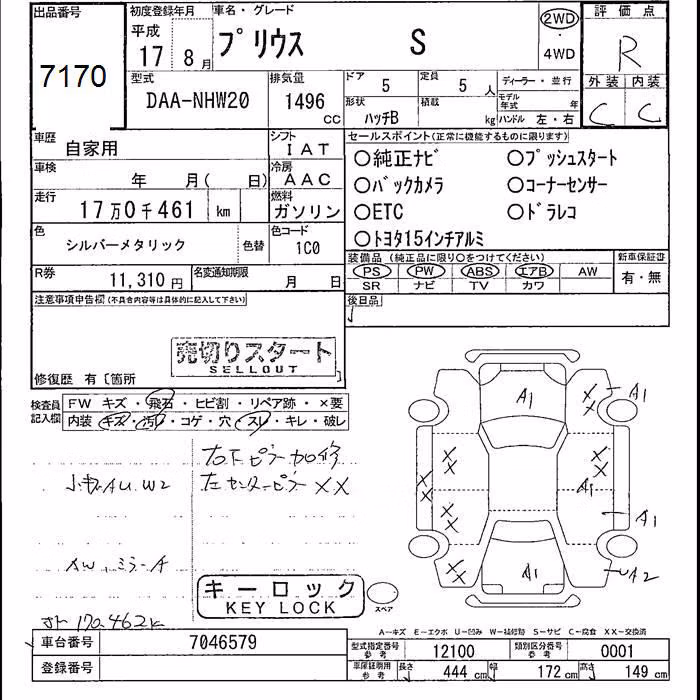 出品番号
7170
初度登録年月
平成
17 8月
車名・グレード
プリウス S
2WD
・
4WD
評価点
R
外装 内装
C C
型式
DAA-NHW20
排気量
1496 cc
ドア 5
定員 5 人
形状 ハッチB
積載 kg
ディーラー・並行
モデル年式 年
ハンドル 左・右
車歴 自家用
シフト IAT
車検 年 月( 日)
冷房 AAC
走行 17万0千461 km
燃料 ガソリン
色 シルバーメタリック 色替
色コード 1C0
R券 11,310円
名変通知期限 月 日
セールスポイント(正常に機能するものに限ります)
○純正ナビ ○プッシュスタート
○バックカメラ ○コーナーセンサー
○ETC ○ドラレコ
○トヨタ15インチアルミ
装備品 (純正品に限り○をつけてください)
PS PW ABS エアB AW
SR ナビ TV カワ
新車保証書
有・無
後日品
注意事項申告欄(不具合内容等は具体的に記入して下さい)
売切りスタート
SELLOUT
修復歴 有〔箇所
検査員記入欄
FW キズ・飛石・ヒビ割・リペア跡・×要
内装 キズ・汚レ・コゲ・穴・スレ・キレ・破レ
右下ピラー加修
小キズAU.W2 左センターピラー XX
AW、ミラーA
キーロック
KEY LOCK
スペア
170.462k
A1
XX
A1
XX
XX
XX
A1
XX
XX
A1
XX
A1
A2
A―キズ E―エクボ U―凹み W―補修跡 S―サビ C―腐食 XX―交換済
車台番号 7046579
登録番号
型式指定番号 参考 12100
類別区分番号 参考 0001
車庫証明用 参考
長さ 444 cm
幅 172 cm
高さ 149 cm